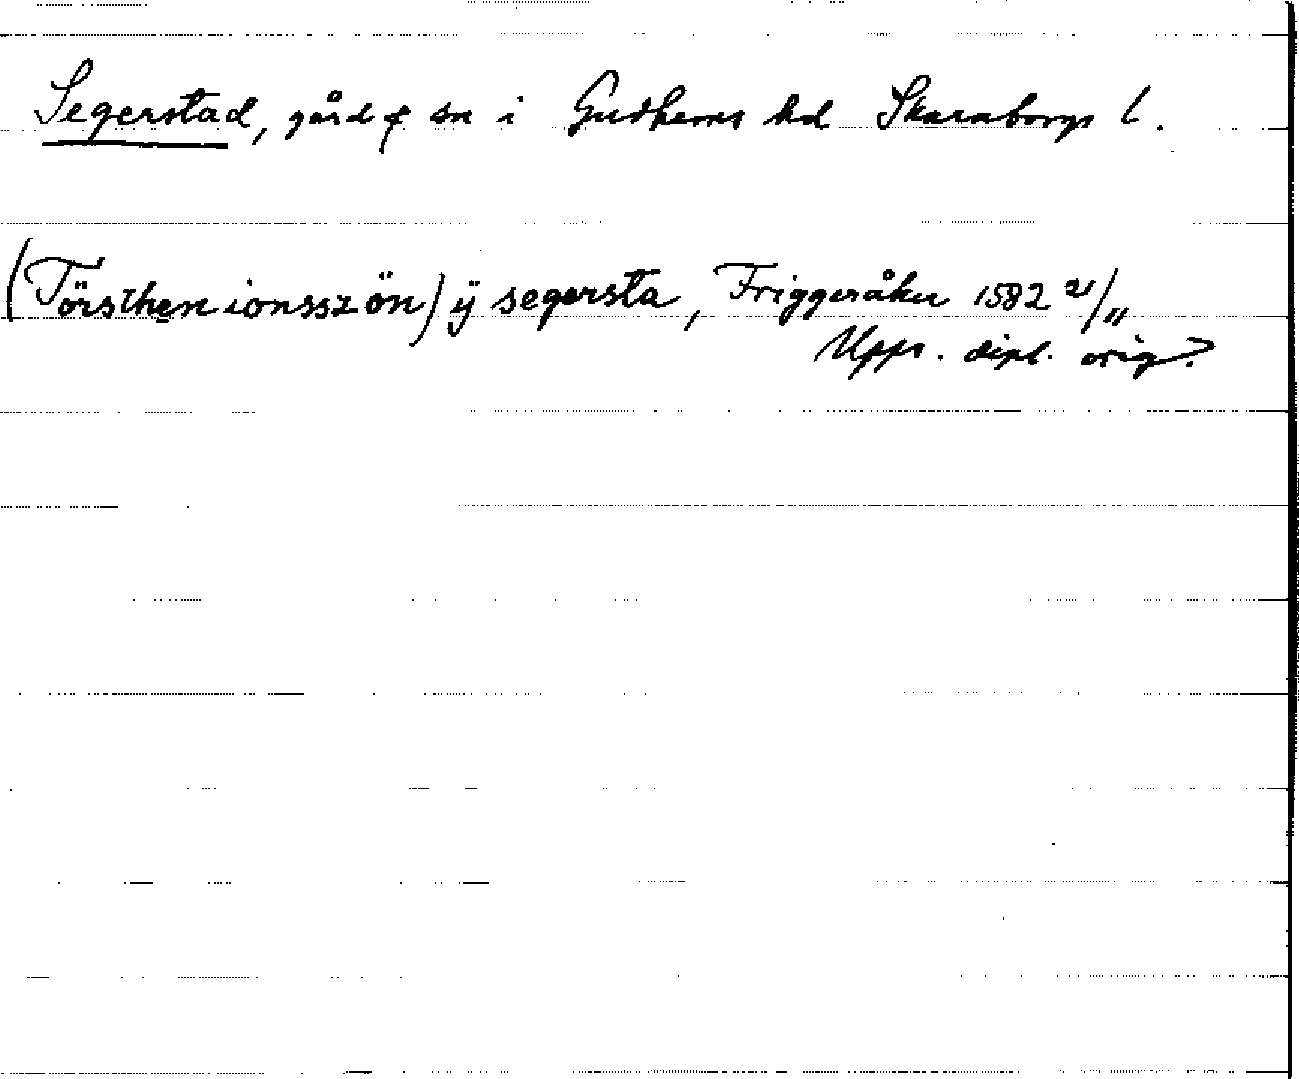 Segerstad, gård o sn i Gudhems hd Skaraborgs l.
(Törsthen ionsszön) ÿ segersta, Friggeråker 1582 21/11
Upps. dipl. orig.